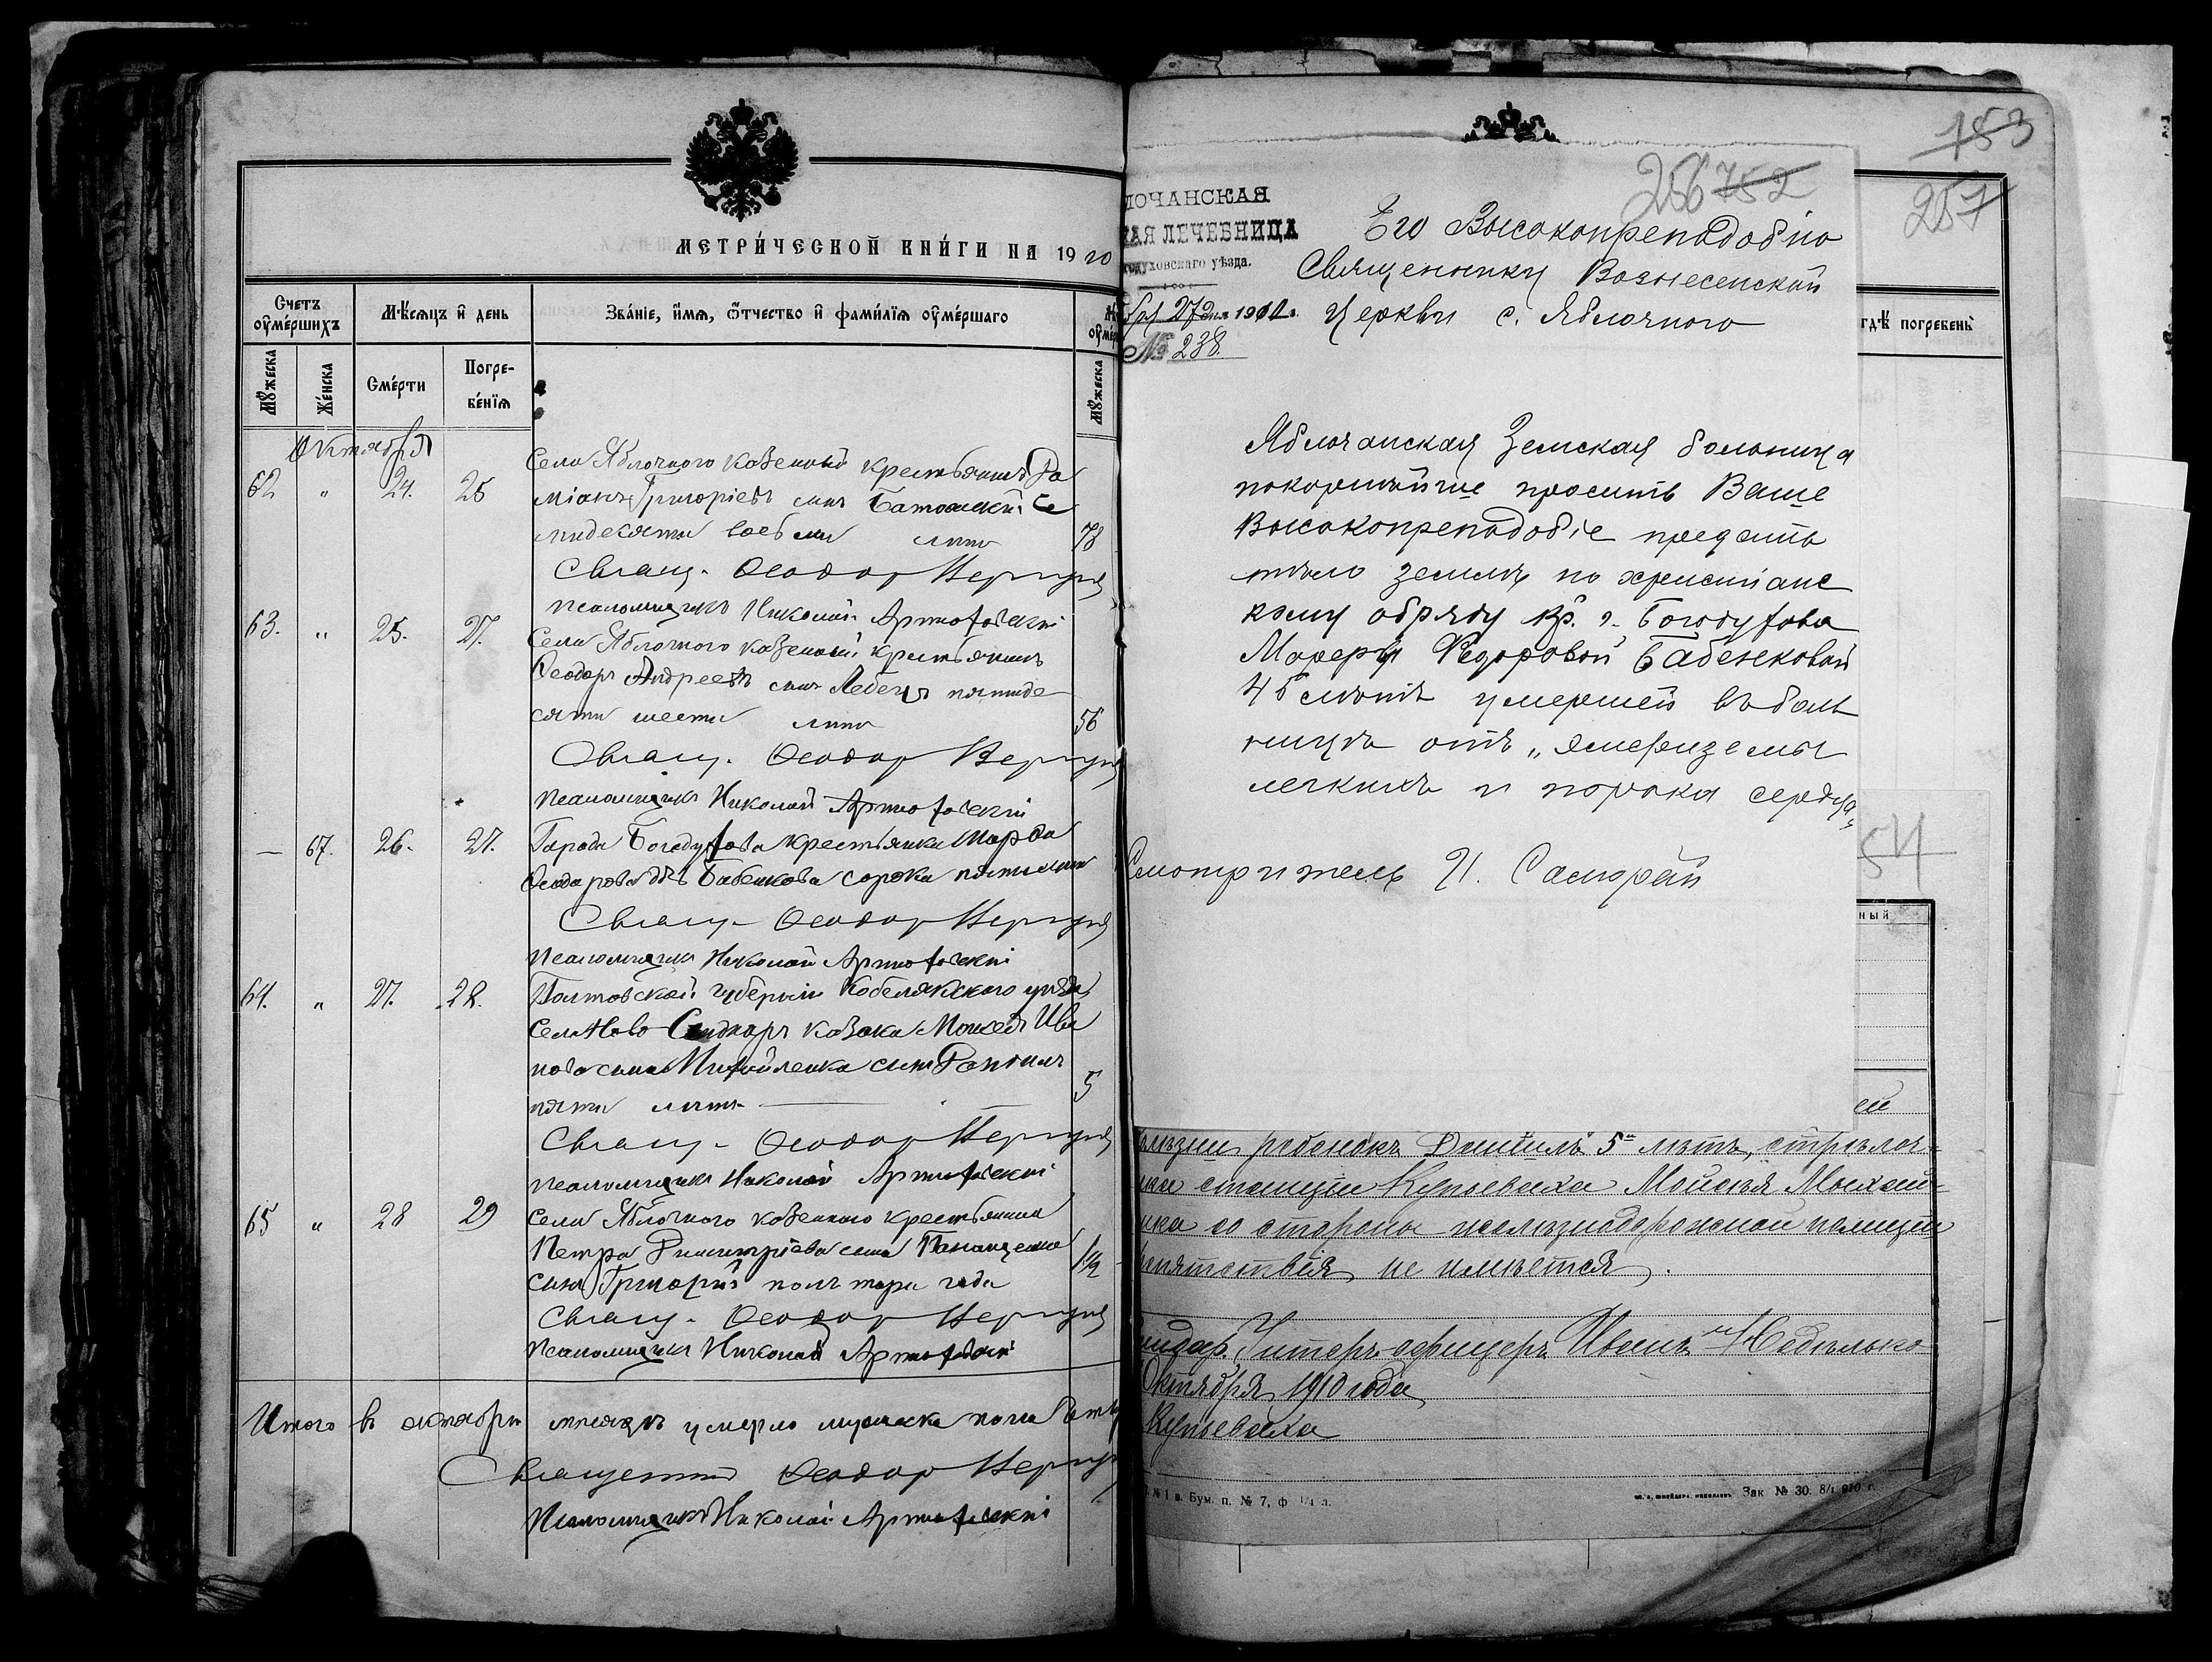 МЕТРИ́ЧЕСКОЙ КНИ́ГИ НА 1910
Счетъ оу҆ме́ршихъ
Мѣ́сяцъ и҆ день
Зва́нїе, и҆́мя, ѻ҆́тчество и҆ фами́лїя оу҆ме́ршаго
Мꙋ́жеска
Же́нска
Сме́рти
Погре-
бе́нїя
Мꙋ́жеска
Октября
62 " 24. 26 Села Яблочного казенный крестьянинъ Да
міанъ Григоріевъ сынъ Се
мидесяти восьми лѣтъ 78
Свящ. Ѳеодор
Псаломщикъ Николай Артюховскій
63. " 25. 27. Села Яблочного казенный крестьянинъ
Ѳеодоръ Андреевъ сынъ Лебедь пятиде
сяти шести лѣтъ 56
Свящ. Ѳеодор
Псаломщикъ Николай Артюховскій
— 67. 26. 27. Города Богодухова крестьянка
Ѳеодорова Бабенкова сорока пяти лѣтъ
Свящ. Ѳеодор
Псаломщикъ Николай Артюховскій
64. " 27. 28. Полтавской губерніи Кобелякского уѣзда
Села Ново-Сенжаръ козака Моисея Ива
нова сына Михайленка сынъ Даніилъ
пяти лѣтъ 5
Свящ. Ѳеодор
Псаломщикъ Николай Артюховскій
65 " 28 29 Села Яблочного казенного крестьянина
Петра Димитріева сына Панащенка
сынъ Григорій полтора года 1½
Свящ. Ѳеодор
Псаломщикъ Николай Артюховскій
Итого въ октябрѣ мѣсяцѣ умерло мужеска пола
Священникъ Ѳеодор
Псаломщикъ Николай Артюховскій
153
256 752
257
ЛОЧАНСКАЯ
КАЯ ЛЕЧЕБНИЦА
одуховскаго уѣзда.
27 дня 1910 г.
№ 238.
Его Высокопреподобію
Священнику Вознесенской
Церкви с. Яблочного
гдѣ̀ погребенъ̀
Яблочанская Земская больница
покорнѣйше проситъ Ваше
Высокопреподобіе предать
тѣло землѣ по христіанс
кому обряду кр. г. Богодухова
Федоровой Бабенковой
45 лѣтъ умершей въ боль
ницѣ отъ „эмфиземы
легкихъ и порока сердца"
Смотритель И. Саморай
54
ный
ей
ребенокъ Даніилъ 5 лѣтъ, стрѣлоч-
ка станціи Купьеваха Мойсѣя Михай-
ика со стороны желѣзнодорожной полиціи
препятствія не имѣется.
Унтеръ-офицеръ Иванъ
Октября 1910 года
Купьеваха
№ 1 в. Бум. п. № 7, ф ¼ л.
Зак № 30. 8/I 910 г.